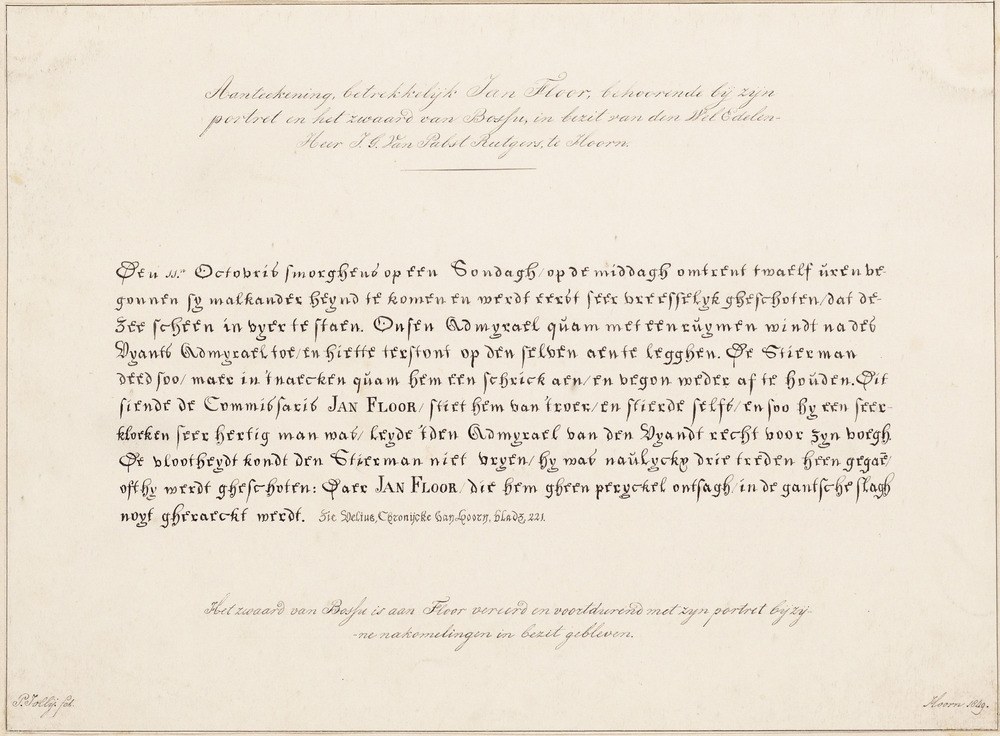 Aanteekening, betrekkelijk Jan Floor, behoorende bij zyn
portret en het zwaard van Bossu, in bezit van den Wel Edelen-
Heer J. G. Van Pabst Rutgers, te Hoorn.
Den 11.n Octobris smorghens op een Sondagh/ op de middagh omtrent twaelf uren be-
gonnen sy malkander heynd te komen en werdt eerst seer vreesselyk gheschoten/ dat de-
Zee scheen in vyer te staen. Onsen Admyrael quam met een ruymen windt na des
Vyants Admyrael toe/ en hiette terstont op den selven aen te legghen. De Stierman
deed soo/ maer in 't naecken quam hem een schrick aen/ en begon weder af te houden. Dit
siende de Commissaris JAN FLOOR/ stiet hem van 't roer/ en stierde selfs/ en soo hy een seer-
kloeken seer hertig man was/ leyde 't den Admyrael van den Vyandt recht voor zyn boegh.
De vlootheydt kondt den Stierman niet vryen/ hy was naulycky drie treden heen gegaē/
oft hy werdt gheschoten: Daer JAN FLOOR/ die hem gheen peryckel ontsagh/ in de gantsche slagh
noyt gheraeckt werdt. Zie Velius, Chronijcke van Hoorn, bladz. 221.
Het zwaard van Bossu is aan Floor vereerd en voortdurend met zyn portret by zij-
-ne nakomelingen in bezit gebleven.
P. Jollij. fct.
Hoorn 1849.